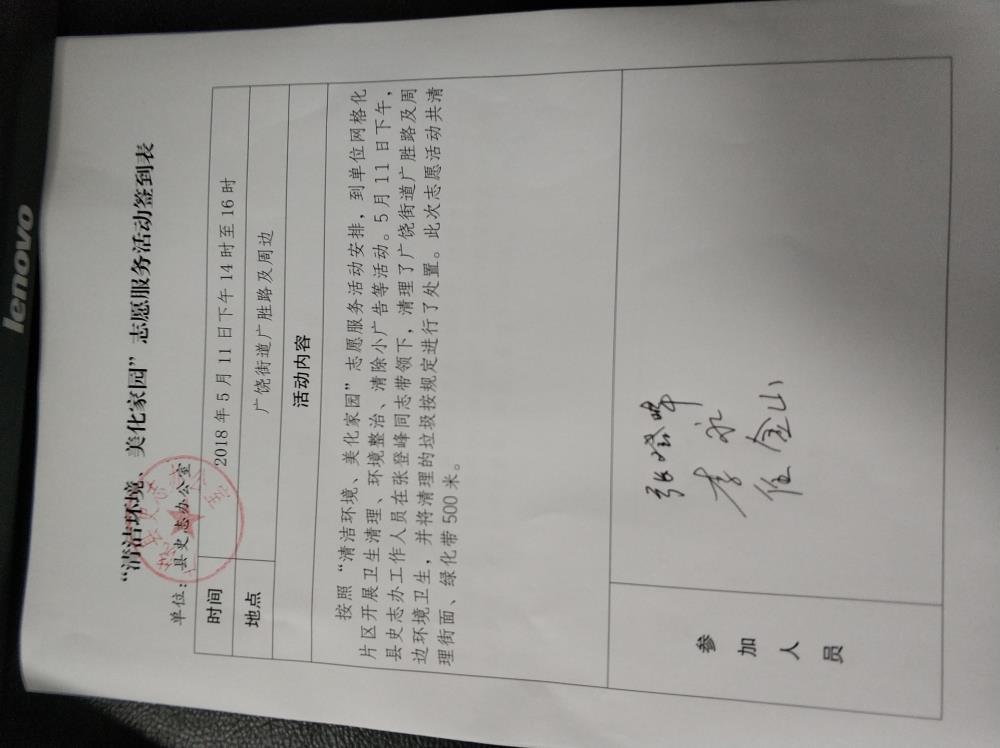 lenovo
“清洁环境、美化家园”志愿服务活动签到表
单位：县史志办公室
时间 2018年5月11日下午14时至16时
地点 广饶街道广胜路及周边
活动内容
按照“清洁环境、美化家园”志愿服务活动安排，到单位网格化
片区开展卫生清理、环境整治、清除小广告等活动。5月11日下午，
县史志办工作人员在张登峰同志带领下，清理了广饶街道广胜路及周
边环境卫生，并将清理的垃圾按规定进行了处置。此次志愿活动共清
理街面、绿化带500米。
参加人员
张登峰
李永
任金山